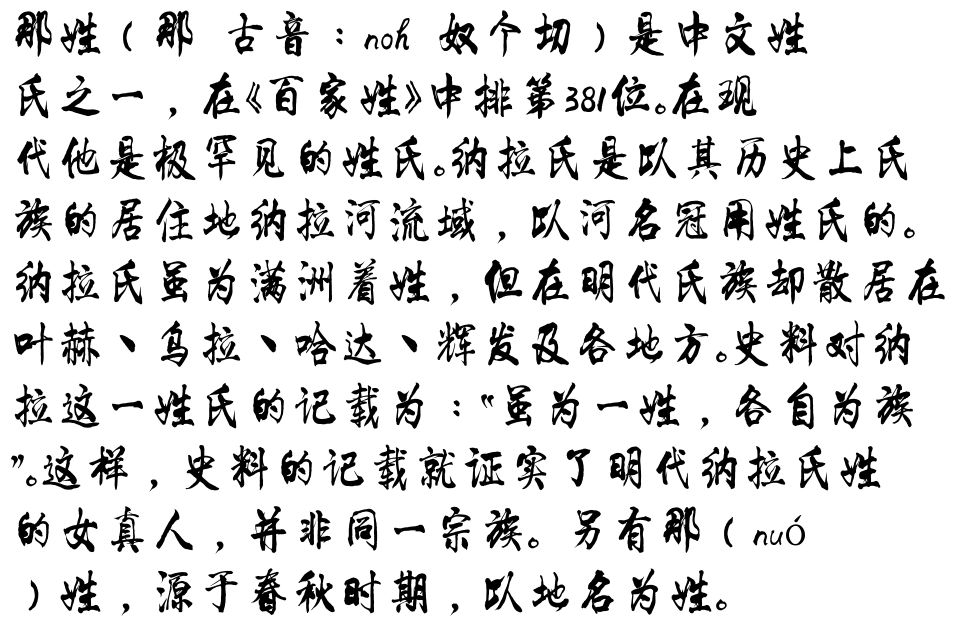 那姓（那 古音：noh 奴个切）是中文姓
氏之一，在《百家姓》中排第381位。在现
代他是极罕见的姓氏。纳拉氏是以其历史上氏
族的居住地纳拉河流域，以河名冠用姓氏的。
纳拉氏虽为满洲着姓，但在明代氏族却散居在
叶赫、乌拉、哈达、辉发及各地方。史料对纳
拉这一姓氏的记载为：“虽为一姓，各自为族
”。这样，史料的记载就证实了明代纳拉氏姓
的女真人，并非同一宗族。另有那（nuó
）姓，源于春秋时期，以地名为姓。